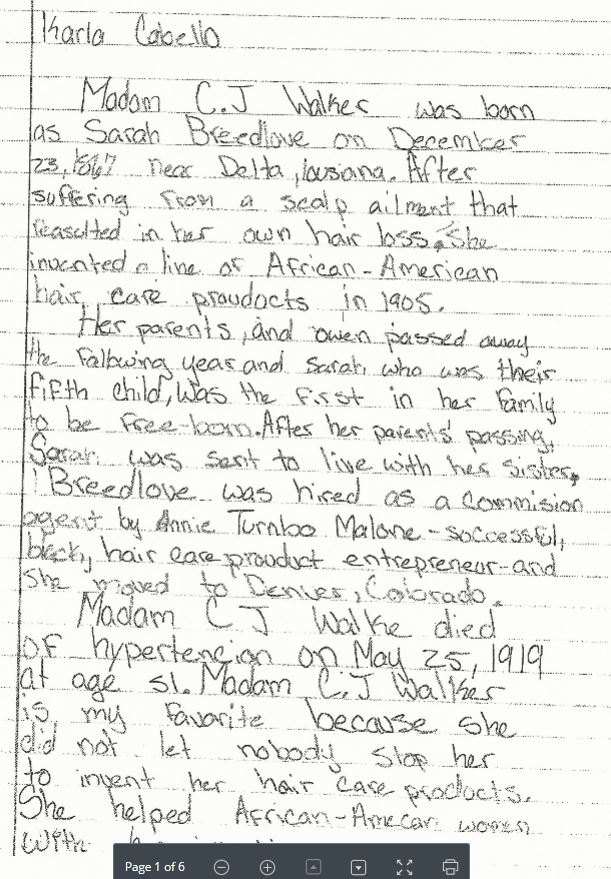 Karla Cabello
Madam C.J Walker was born
as Sarah Breedlove on December
23, 1867 near Delta, lousiana. After
suffering from a scalp ailment that
reasulted in her own hair loss, She
invented a line of African-American
hair care proudocts in 1905.
Her parents, and owen passed away
the following year and Sarah, who was their
Fifth child, was the first in her family
to be free-born. After her parents' passing,
Sarah was sent to live with her sister,
Breedlove was hired as a commision
agent by Annie Turnbo Malone-soccessful,
black, hair care prouduct entrepreneur-and
she moved to Denver, Colorado.
Madam C J Walke died
of hypertencion on May 25, 1919
at age 51. Madam C.J Walker
is my favorite because she
did not let nobody stop her
to invent her hair care products.
She helped African-Amecan women
with
Page 1 of 6